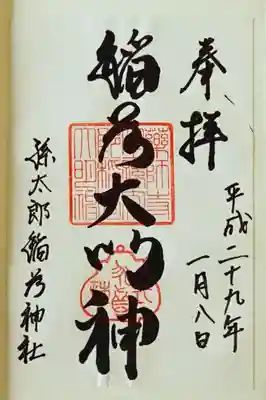 奉拝
平成二十九年
一月八日
稲荷大明神
孫太郎稲荷神社